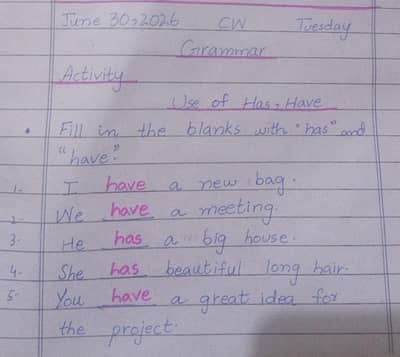 June 30, 2026 CW Tuesday
Grammar
Activity
Use of Has, Have
• Fill in the blanks with "has" and
"have."
1- I have a new bag.
2- We have a meeting.
3- He has a big house.
4- She has beautiful long hair.
5- You have a great idea for
the project.